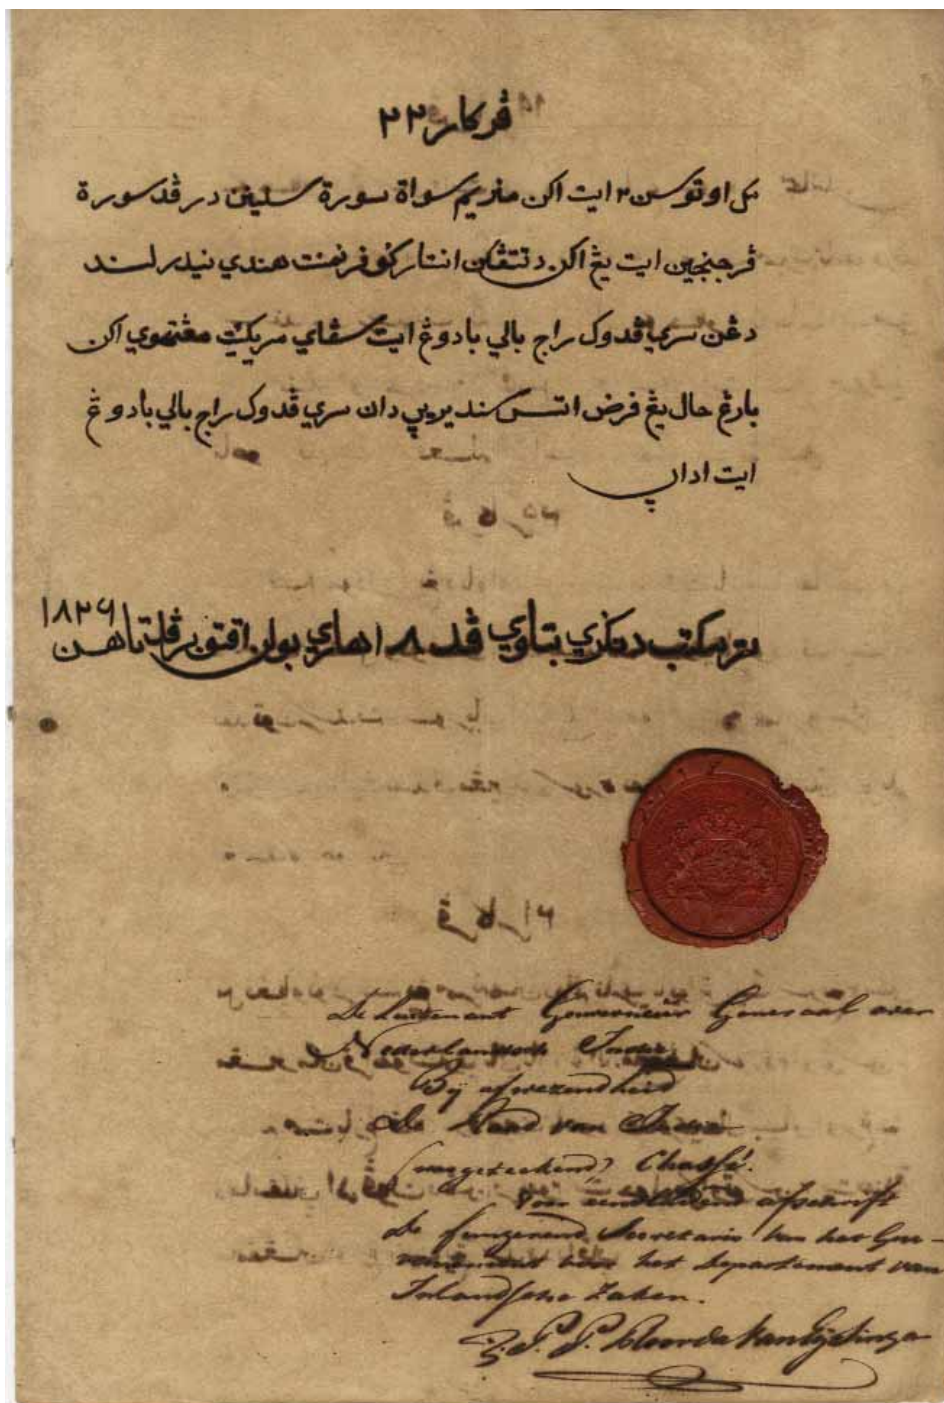 ڤرکار ٢٣
مک اوتوسن٢ ايت اکن منريم سواة سورة سلينن درڤد سورة
ڤرجنجين ايت يڠ اکن دتتڤکن انتار کوفرنمنت هندي نيدرلند
دڠن سري ڤدوک راج بالي بادوڠ ايت سڤاي مريکئت مڠتهوي اکن
بارڠ حال يڠ فرض اتس سنديريڽ دان سري ڤدوک راج بالي بادوڠ
ايت اداڽ
ترمکتب دنکري بتاوي ڤد ١٨ هاري بولن اقتوبر ڤد تاهن ١٨٢٦
De Luitenant Gouverneur Generaal over
Nederlandsch Indie
Bij afwezendheid
De Raad van Indie
(was geteekend) Chassé.
Voor eensluidend afschrift
De fungerend Secretaris van het Gou-
vernement voor het departement van
Inlandsche Zaken.
P. P. Roorda van Eijsinga